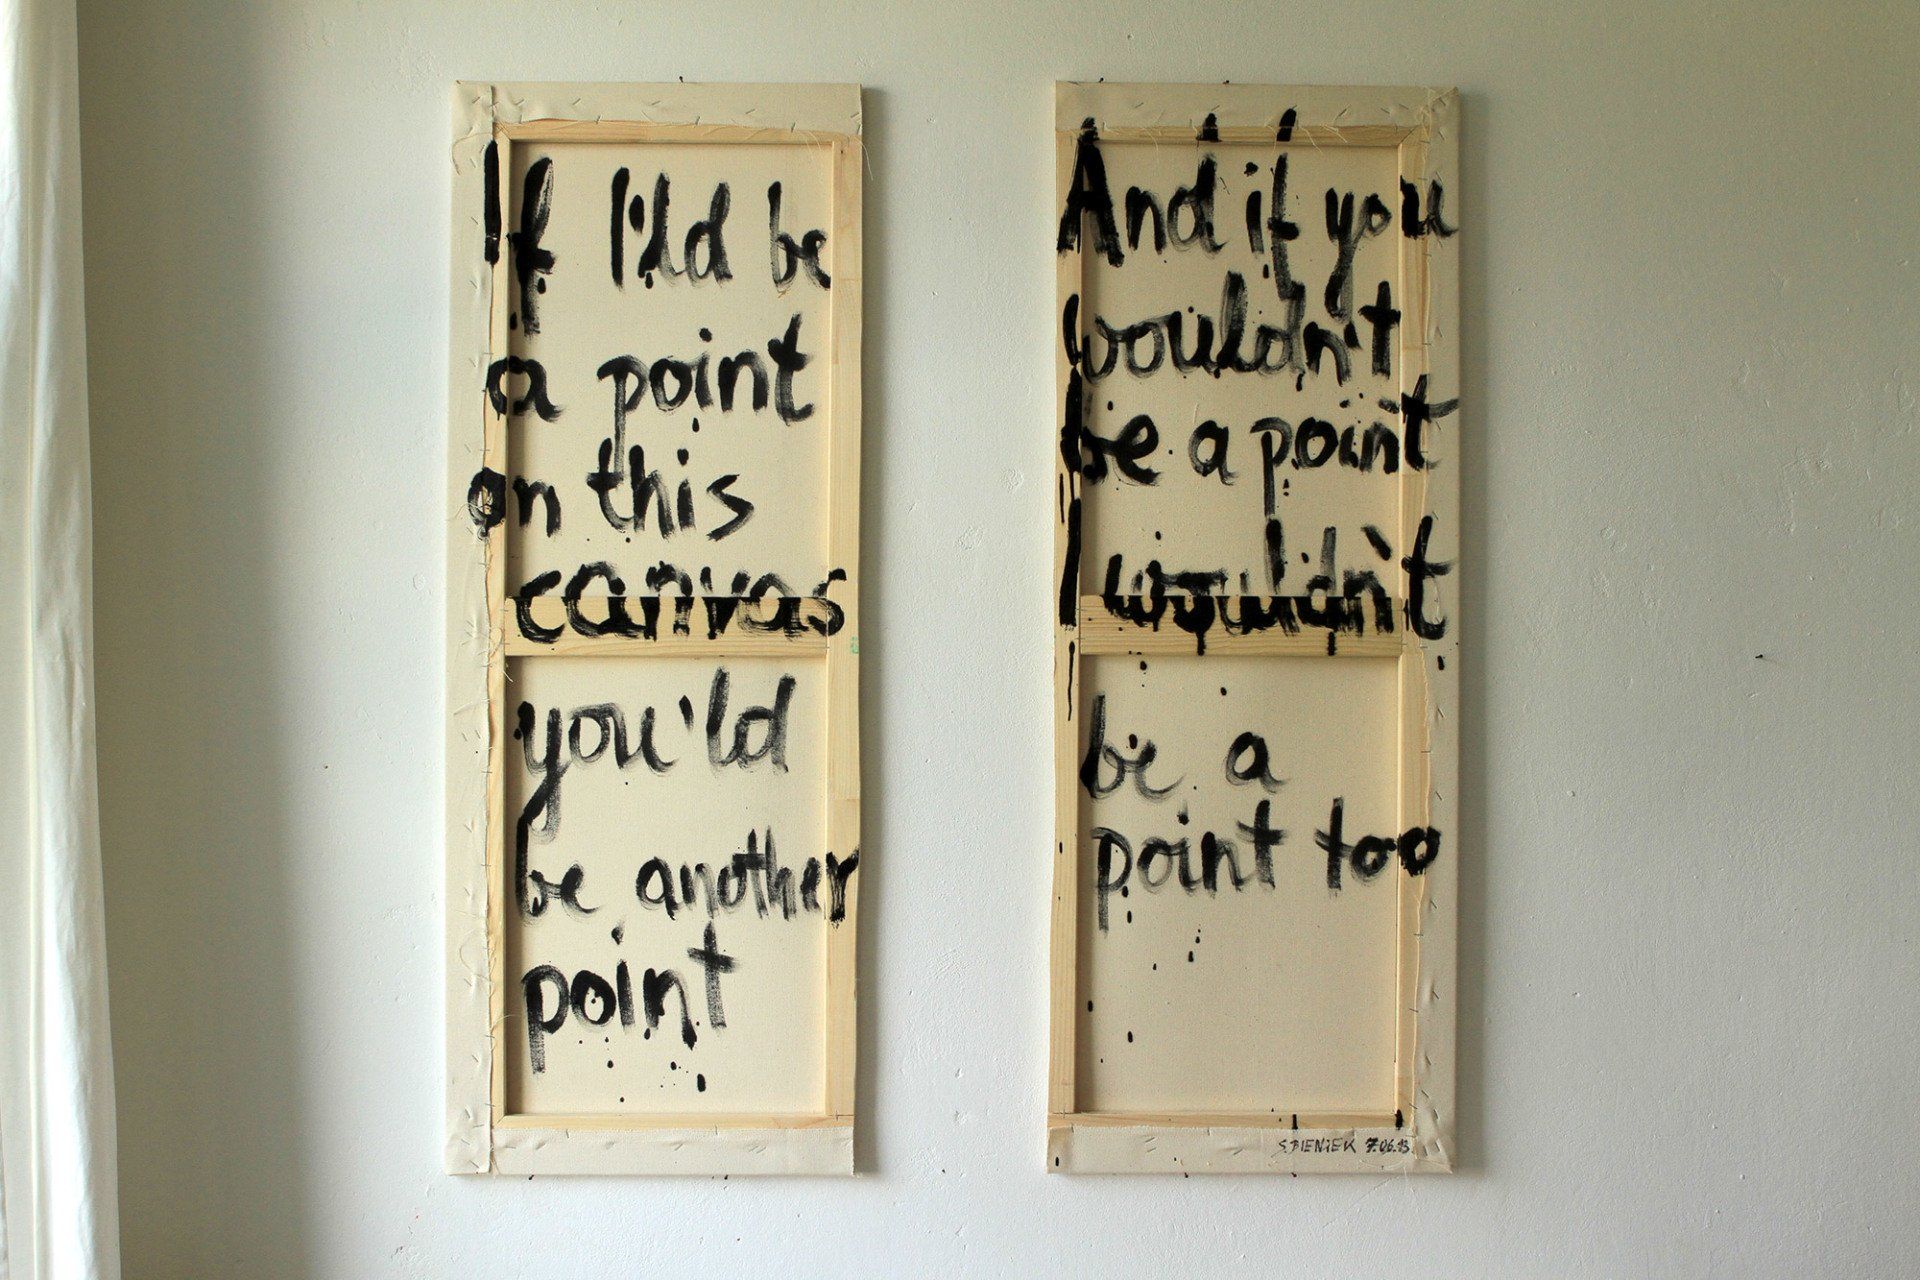 If I'ld be
a point
on this
canvas
you'ld
be another
point
And if you
wouldn't
be a point
I wouldn't
be a
point too
S.BIENIEK 7.06.13